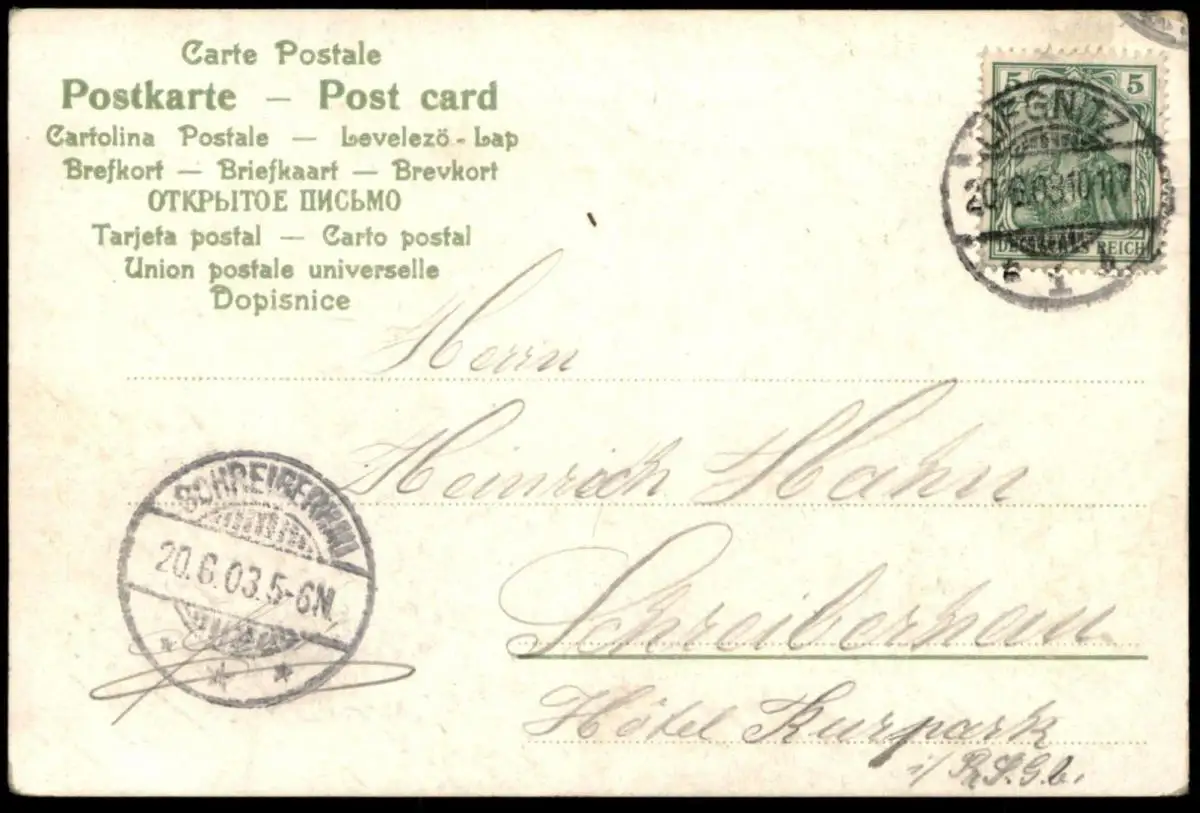 Carte Postale
Postkarte — Post card
Cartolina Postale — Levelező-Lap
Brefkort — Briefkaart — Brevkort
ОТКРЫТОЕ ПИСЬМО
Tarjeta postal — Carto postal
Union postale universelle
Dopisnice
5 5
LIEGNITZ
20.6.03.10-11V
DEUTSCHES REICH
1
Herrn
Heinrich Hahn
Schreiberhau
Hôtel Kurpark
i/ R.S.G.b.
SCHREIBERHAU
20.6.03.5-6N.